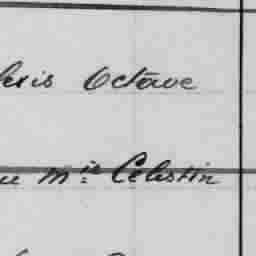 lexis Octave
m.is Celestin